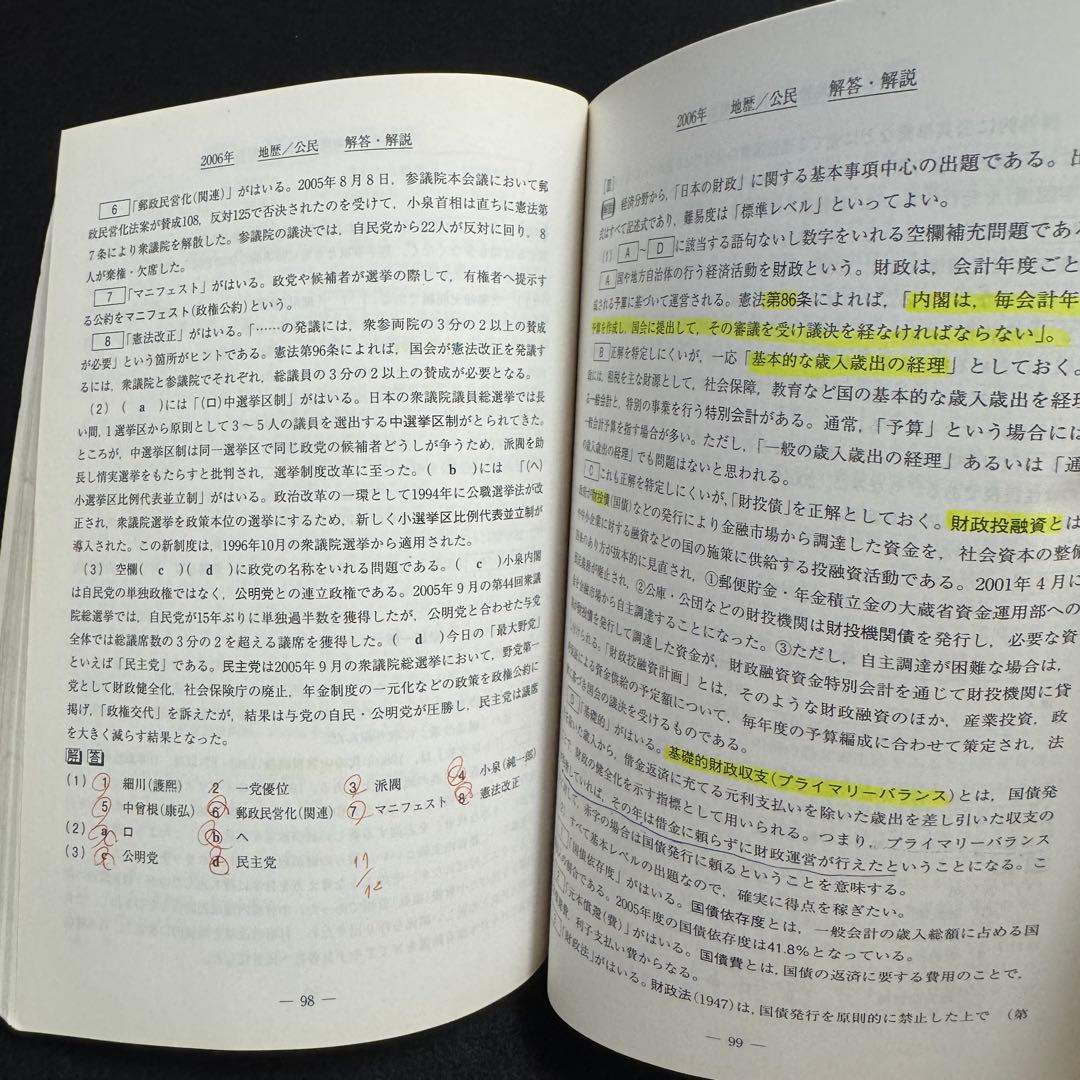 2006年 地歴／公民 解答・解説
6 「郵政民営化(関連)」がはいる。2005年8月8日，参議院本会議において郵
政民営化法案が賛成108，反対125で否決されたのを受けて，小泉首相は直ちに憲法第
7条により衆議院を解散した。参議院の議決では，自民党から22人が反対に回り，8
人が棄権・欠席した。
7 「マニフェスト」がはいる。政党や候補者が選挙の際して，有権者へ提示す
る公約をマニフェスト(政権公約)という。
8 「憲法改正」がはいる。「……の発議には，衆参両院の3分の2以上の賛成
が必要」という箇所がヒントである。憲法第96条によれば，国会が憲法改正を発議す
るには，衆議院と参議院でそれぞれ，総議員の3分の2以上の賛成が必要となる。
(2) ( a )には「(ロ)中選挙区制」がはいる。日本の衆議院議員総選挙では長
い間，1選挙区から原則として3～5人の議員を選出する中選挙区制がとられてきた。
ところが，中選挙区制は同一選挙区で同じ政党の候補者どうしが争うため，派閥を助
長し情実選挙をもたらすと批判され，選挙制度改革に至った。( b )には「(ヘ)
小選挙区比例代表並立制」がはいる。政治改革の一環として1994年に公職選挙法が改
正され，衆議院選挙を政策本位の選挙にするため，新しく小選挙区比例代表並立制が
導入された。この新制度は，1996年10月の衆議院選挙から適用された。
(3) 空欄( c )( d )に政党の名称をいれる問題である。( c )小泉内閣
は自民党の単独政権ではなく，公明党との連立政権である。2005年9月の第44回衆議
院総選挙では，自民党が15年ぶりに単独過半数を獲得したが，公明党と合わせた与党
全体では総議席数の3分の2を超える議席を獲得した。( d )今日の「最大野党」
といえば「民主党」である。民主党は2005年9月の衆議院総選挙において，野党第一
党として財政健全化，社会保険庁の廃止，年金制度の一元化などの政策を政権公約に
掲げ，「政権交代」を訴えたが，結果は与党の自民・公明党が圧勝し，民主党は議席
を大きく減らす結果となった。
解答
(1) 1 細川(護熙) 2 一党優位 3 派閥 4 小泉(純一郎)
5 中曽根(康弘) 6 郵政民営化(関連) 7 マニフェスト 8 憲法改正
(2) a ロ b ヘ
(3) c 公明党 d 民主党
11/12
— 98 —
2006年 地歴／公民 解答・解説
〔Ⅲ〕
解説 経済分野から，「日本の財政」に関する基本事項中心の出題である。出
式はすべて記述式であり，難易度は「標準レベル」といってよい。
(1) A ～ D に該当する語句ないし数字をいれる空欄補充問題であ
A 国や地方自治体の行う経済活動を財政という。財政は，会計年度ごと
成される予算に基づいて運営される。憲法第86条によれば，「内閣は，毎会計年
予算を作成し，国会に提出して，その審議を受け議決を経なければならない」。
B 正解を特定しにくいが，一応「基本的な歳入歳出の経理」としておく。
には，租税を主な財源として，社会保障，教育など国の基本的な歳入歳出を経理
る一般会計と，特別の事業を行う特別会計がある。通常，「予算」という場合には
一般会計予算を指す場合が多い。ただし，「一般の歳入歳出の経理」あるいは「通
の歳入歳出の経理」でも問題はないと思われる。
C これも正解を特定しにくいが，「財投債」を正解としておく。財政投融資とは
財投債(国債)などの発行により金融市場から調達した資金を，社会資本の整備
や中小企業に対する融資などの国の施策に供給する投融資活動である。2001年4月に
のあり方が抜本的に見直され，①郵便貯金・年金積立金の大蔵省資金運用部への
が廃止され，②公庫・公団などの財投機関は財投機関債を発行し，必要な資
金を金融市場から自主調達することになった。③ただし，自主調達が困難な場合は，
財投債を発行して調達した資金が，財政融資資金特別会計を通じて財投機関に貸
付けられる。「財政投融資計画」とは，そのような財政融資のほか，産業投資，政
による資金供給の予定額について，毎年度の予算編成に合わせて策定され，法
に基づき国会の議決を受けるものである。
D 「基礎的」がはいる。基礎的財政収支(プライマリーバランス)とは，国債発
を除いた歳入から，借金返済に充てる元利支払いを除いた歳出を差し引いた収支の
で，財政の健全化を示す指標として用いられる。つまり，プライマリーバランス
していれば，その年は借金に頼らずに財政運営が行えたということになる。こ
して，赤字の場合は国債発行に頼るということを意味する。
すべて基本レベルの出題なので，確実に得点を稼ぎたい。
「国債依存度」がはいる。国債依存度とは，一般会計の歳入総額に占める国
の割合である。2005年度の国債依存度は41.8%となっている。
「元本償還(費)」がはいる。国債費とは，国債の返済に要する費用のことで，
費，利子支払い費からなる。
「財政法」がはいる。財政法(1947)は，国債発行を原則的に禁止した上で (第
— 99 —